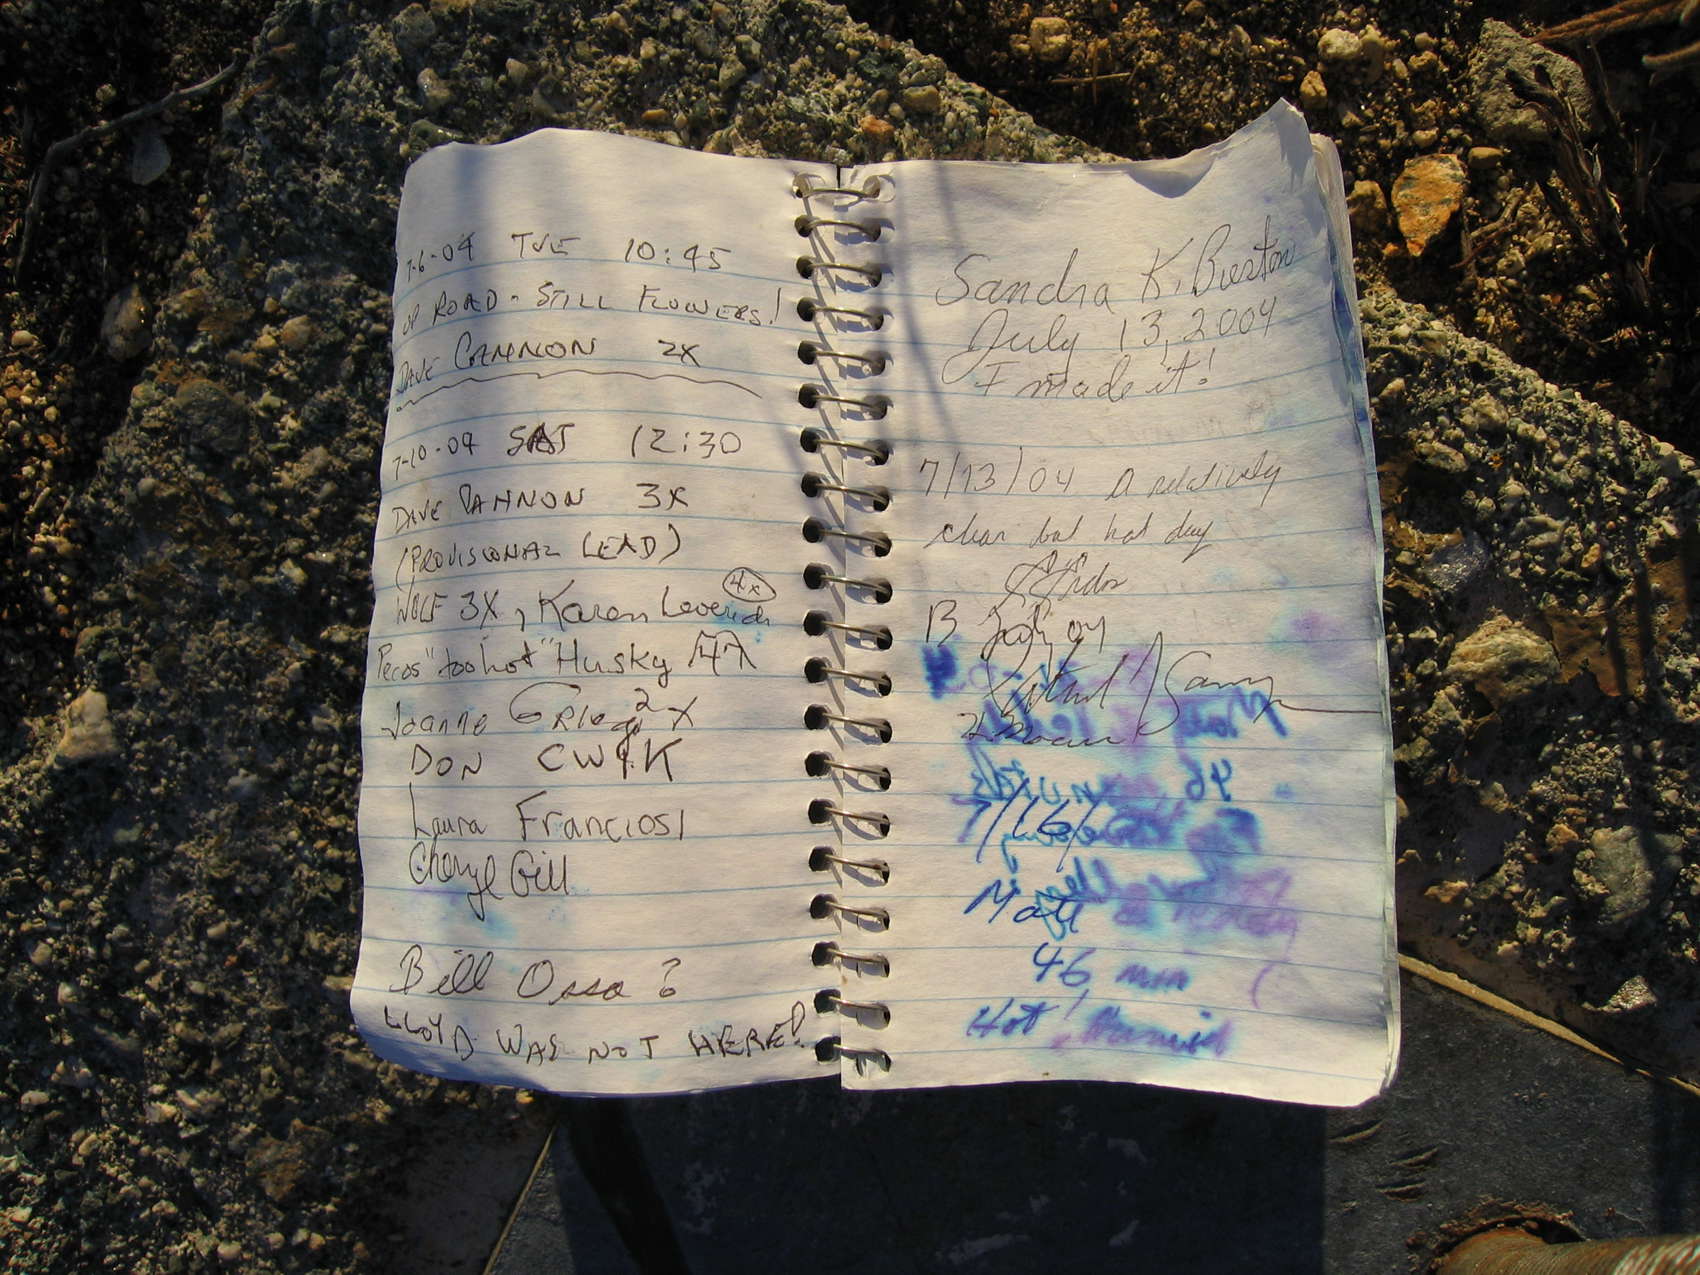 7-6-04 TUE 10:45
UP ROAD - STILL FLOWERS!
DAVE CANNON 2X
7-10-04 SAT 12:30
DAVE CANNON 3X
(PROVISIONAL LEAD)
WOLF 3X, Karen Leverich 4x
Pecos "too hot" Husky
Joanne 2X
DON CWIK
Laura Franciosi
Cheryl Gill
Bill Ossa?
LLOYD WAS NOT HERE!
Sandra K.
July 13, 2004
I made it!
7/13/04 A relatively
clear but hot day
13 July 04
7/16/
Matt
46 min
Hot! Humid